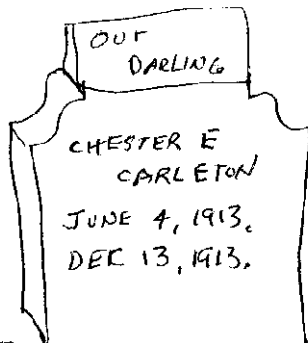 OUr
DARLING
CHESTER E
CARLETON
JUNE 4, 1913.
DEC 13, 1913.